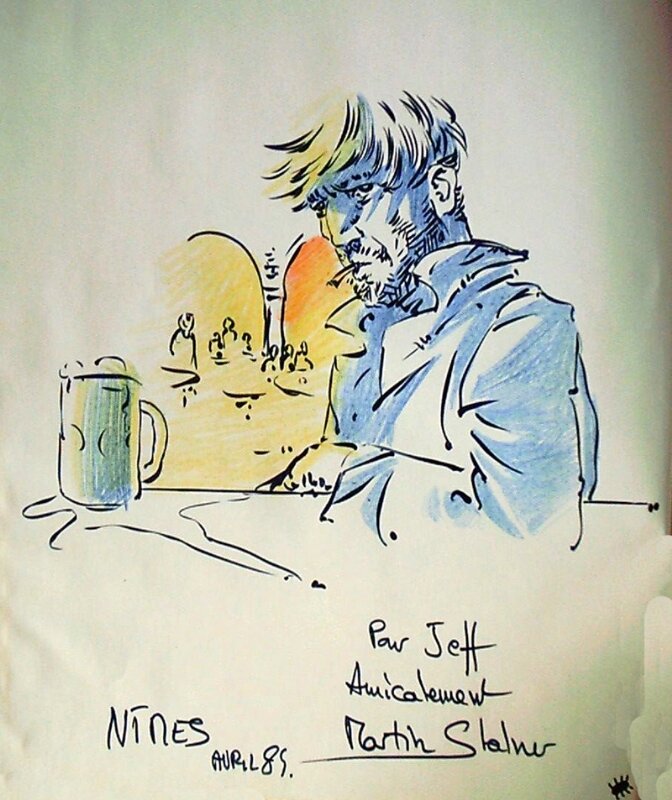 Pour Jeff
Amicalement
Martin Stalner
NÎMES
AVRIL 89.